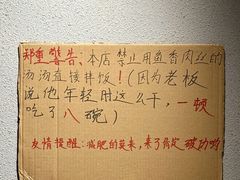 郑重警告：本店禁止用鱼香肉丝的
汤汤直接拌饭！(因为老板
说他年轻时这么干，一顿
吃了八碗)
友情提醒：减肥的莫来，来了肯定破功哟